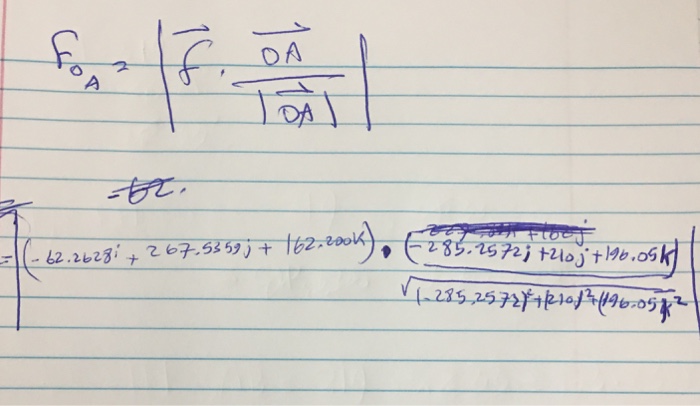 F_OA = | \vec{f} · \vec{OA} / |\vec{OA}| |
= 62.
= | (-62.2628i + 267.5359j + 162.200k) · (-285.2572i + 210j + 196.05k) / √(-285.2572)² + (210)² + (196.05)k² |